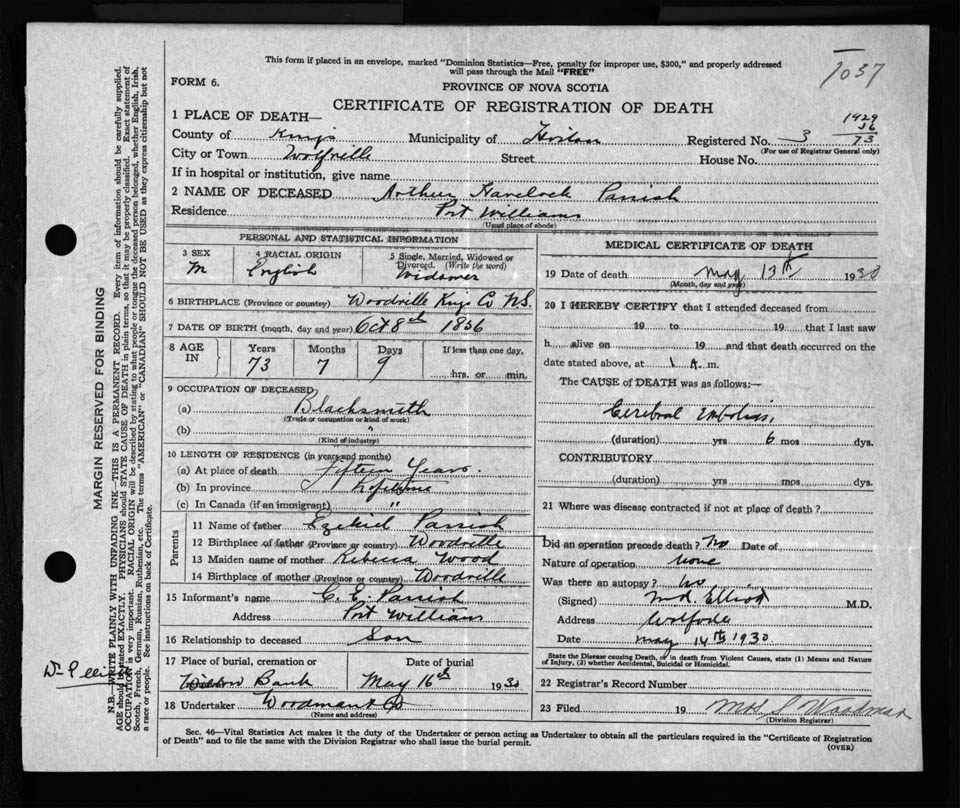 This form if placed in an envelope, marked "Dominion Statistics—Free, penalty for improper use, $300," and properly addressed
will pass through the Mail "FREE"
1037
FORM 6.
PROVINCE OF NOVA SCOTIA
CERTIFICATE OF REGISTRATION OF DEATH
1 PLACE OF DEATH—
1429
County of Kings Municipality of Horton Registered No. 3 73
(For use of Registrar General only)
City or Town Wolfville Street House No.
If in hospital or institution, give name
2 NAME OF DECEASED Arthur Havelock Parrish
Residence Port Williams
(Usual place of abode)
PERSONAL AND STATISTICAL INFORMATION
3 SEX 4 RACIAL ORIGIN 5 Single, Married, Widowed or
Divorced. (Write the word)
M English Widower
6 BIRTHPLACE (Province or country) Woodville Kings Co N.S.
7 DATE OF BIRTH (month, day and year) Oct 8th 1856
8 AGE IN Years Months Days If less than one day,
73 7 9 hrs. or min.
9 OCCUPATION OF DECEASED
(a) Blacksmith
(Trade or occupation or kind of work)
(b) "
(Kind of industry)
10 LENGTH OF RESIDENCE (in years and months)
(a) At place of death Fifteen Years.
(b) In province Lifetime
(c) In Canada (if an immigrant) "
Parents
11 Name of father Ezekiel Parrish
12 Birthplace of father (Province or country) Woodville
13 Maiden name of mother Rebecca Wood
14 Birthplace of mother (Province or country) Woodville
15 Informant's name C. E. Parrish
Address Port Williams
16 Relationship to deceased Son
17 Place of burial, cremation or Date of burial
Bank May 16th 1930
18 Undertaker Woodman Co
(Name and address)
MEDICAL CERTIFICATE OF DEATH
19 Date of death May 13th 1930
(Month, day and year)
20 I HEREBY CERTIFY that I attended deceased from
19 to 19 that I last saw
h alive on 19 and that death occurred on the
date stated above, at 1 A. m.
The CAUSE of DEATH was as follows:—
Cerebral Embolus,
(duration) yrs 6 mos dys.
CONTRIBUTORY
(duration) yrs mos dys.
21 Where was disease contracted if not at place of death?
Did an operation precede death? No Date of
Nature of operation None
Was there an autopsy? No
(Signed) M.R. Elliott M.D.
Address Wolfville
Date May 14th 1930
State the Disease causing Death, or in death from Violent Causes, state (1) Means and Nature
of Injury, (2) whether Accidental, Suicidal or Homicidal.
22 Registrar's Record Number
23 Filed 19 Mrs Woodman
(Division Registrar)
Sec. 46—Vital Statistics Act makes it the duty of the Undertaker or person acting as Undertaker to obtain all the particulars required in the "Certificate of Registration
of Death" and to file the same with the Division Registrar who shall issue the burial permit.
(OVER)
MARGIN RESERVED FOR BINDING
N.B.—WRITE PLAINLY WITH UNFADING INK—THIS IS A PERMANENT RECORD. Every item of information should be carefully supplied.
AGE should be stated EXACTLY. PHYSICIANS should STATE CAUSE OF DEATH in plain terms, so that it may be properly classified. Exact statement of
OCCUPATION is very important. RACIAL ORIGIN will be described by stating to what people or tongue the deceased person belonged, whether English, Irish,
Scotch, French, German, Russian, Ruthenian, etc. The terms "AMERICAN" or "CANADIAN" SHOULD NOT BE USED as they express citizenship but not
a race or people. See instructions on back of Certificate.